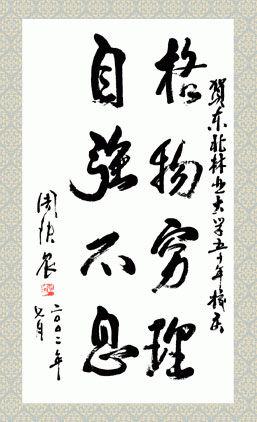 贺东北林业大学五十年校庆
格物穷理
自强不息
周慎农
二〇〇二年
七月